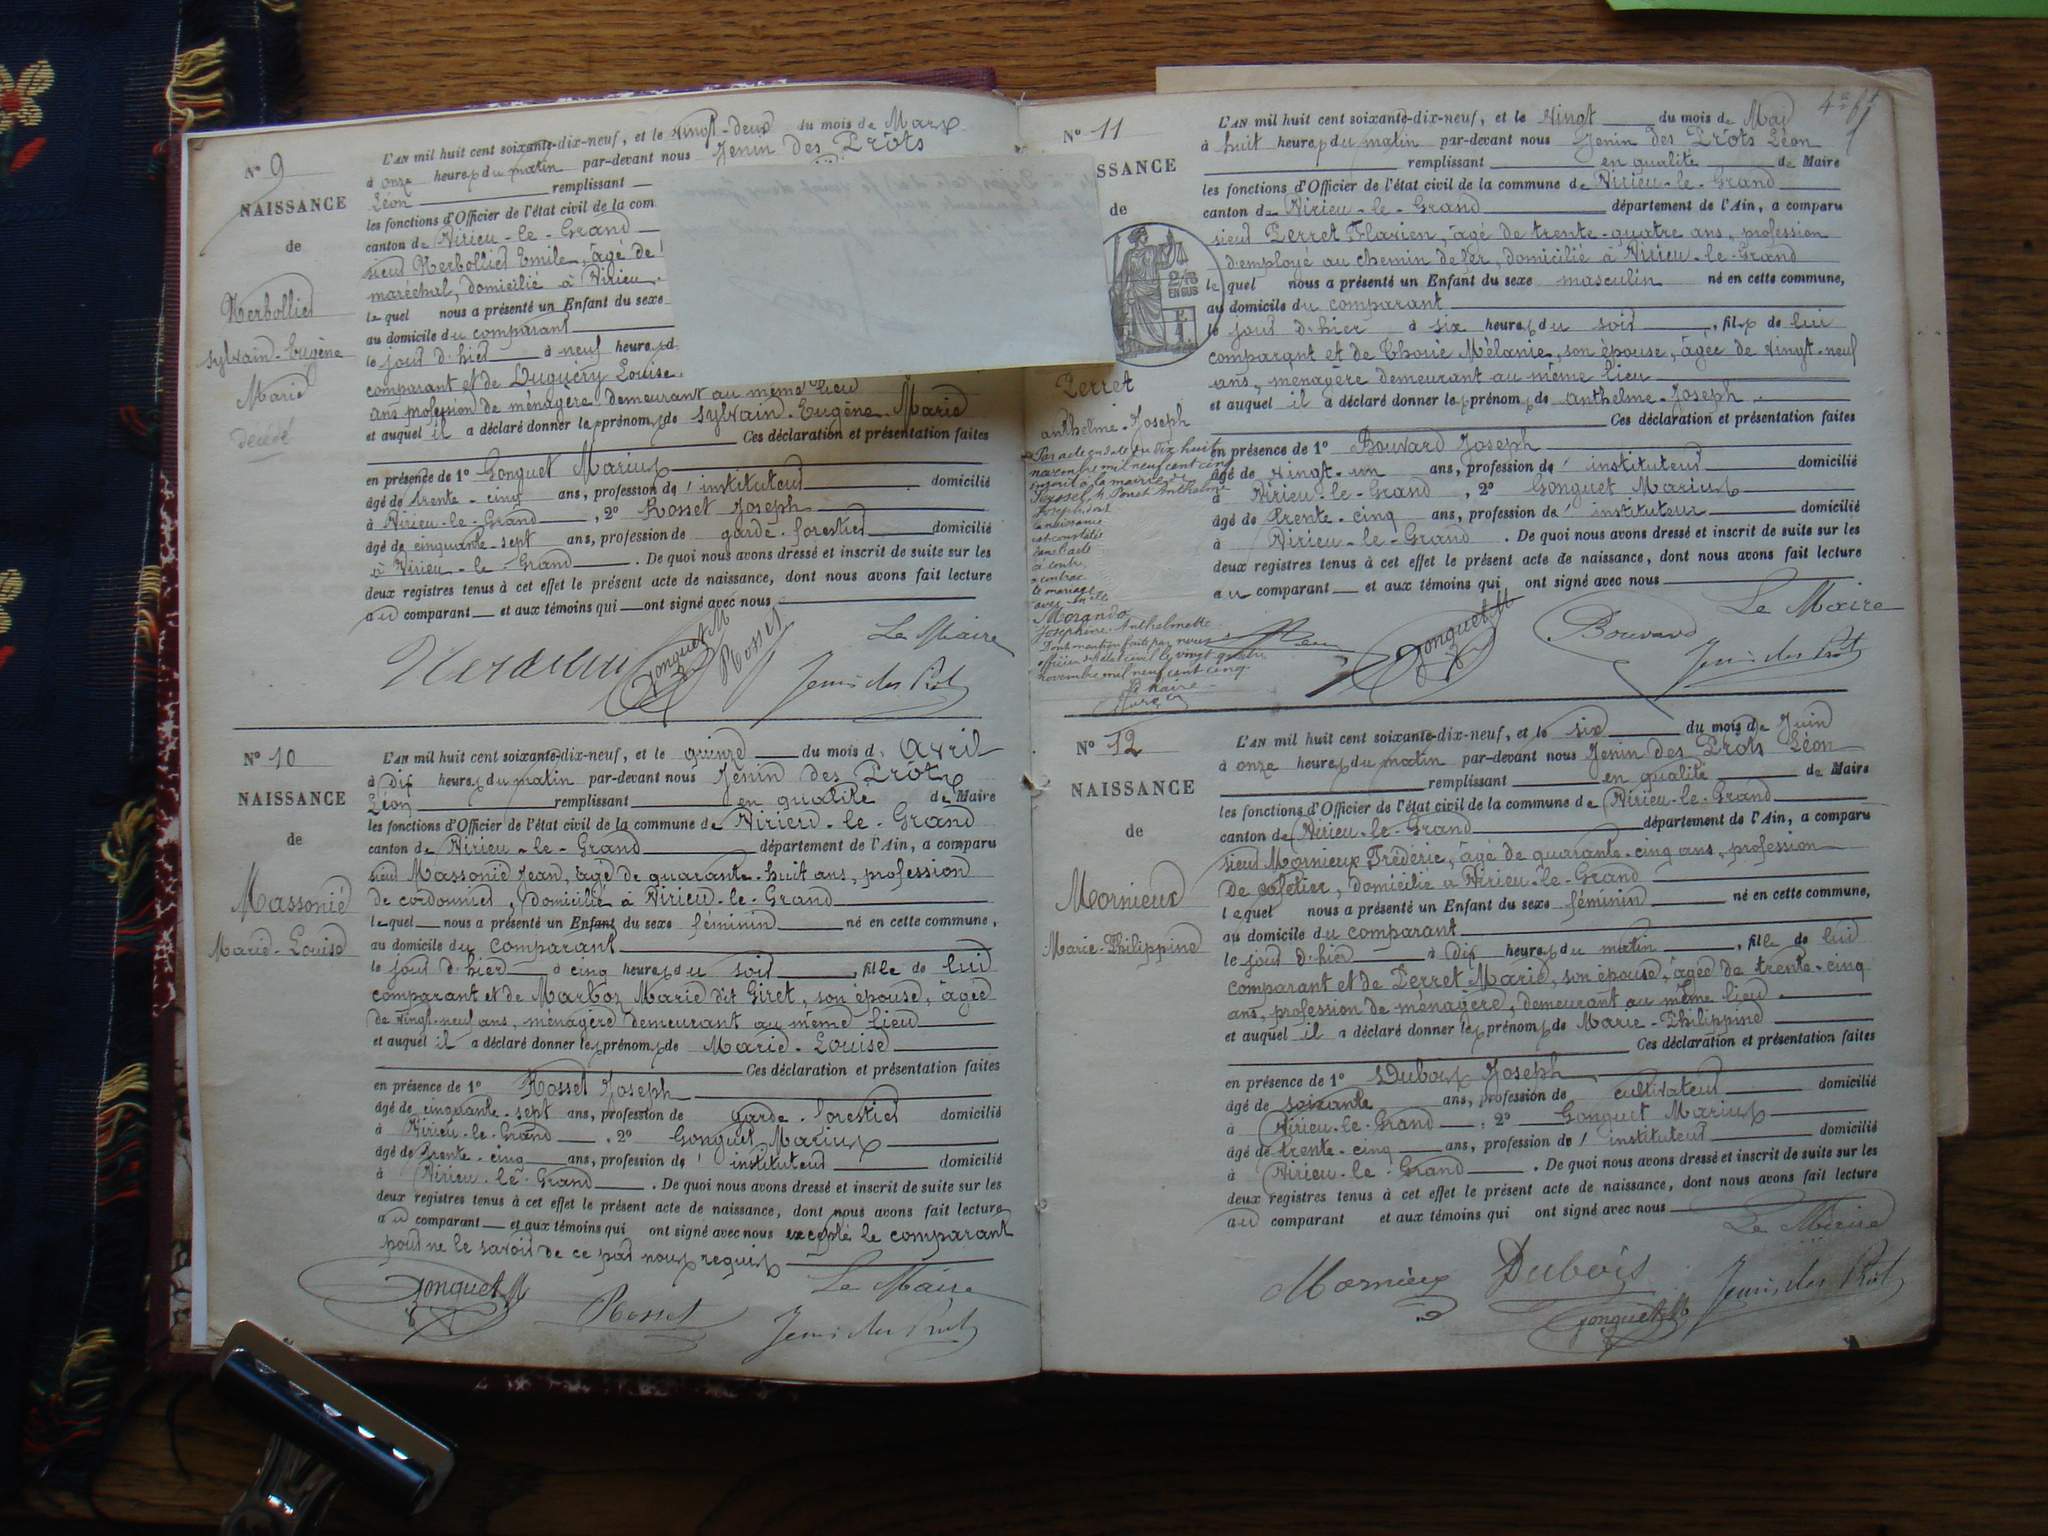 N° 9
NAISSANCE
de
Herbollier
Sylvain-Eugène
Marie
décédé
L'AN mil huit cent soixante-dix-neuf, et le vingt-deux du mois de Mars
à onze heures du matin par-devant nous Jenin des Prôts
Léon remplissant
les fonctions d'Officier de l'état civil de la com
canton de Virieu-le-Grand
sieur Herbollier Emile, âgé de
maréchal, domicilié à Virieu
lequel nous a présenté un Enfant du sexe
au domicile du comparant
le jour d'hier à neuf heures d
comparant et de Duguéry Louise
ans profession de ménagère demeurant au même lieu
et auquel il a déclaré donner les prénoms de Sylvain-Eugène-Marie
Ces déclaration et présentation faites
en présence de 1° Gonguet Marius
âgé de trente-cinq ans, profession de instituteur domicilié
à Virieu-le-Grand, 2° Rosset Joseph
âgé de cinquante-sept ans, profession de garde-forestier domicilié
à Virieu-le-Grand. De quoi nous avons dressé et inscrit de suite sur les
deux registres tenus à cet effet le présent acte de naissance, dont nous avons fait lecture
au comparant et aux témoins qui ont signé avec nous
Gonguet M
Rosset
Le Maire
Jenin des Prôts
N° 10
NAISSANCE
de
Massonié
Marie-Louise
L'AN mil huit cent soixante-dix-neuf, et le quinze du mois d'Avril
à dix heures du matin par-devant nous Jenin des Prôts
Léon remplissant en qualité de Maire
les fonctions d'Officier de l'état civil de la commune de Virieu-le-Grand
canton de Virieu-le-Grand département de l'Ain, a comparu
sieur Massonié Jean, âgé de quarante-huit ans, profession
de cordonnier, domicilié à Virieu-le-Grand
lequel nous a présenté un Enfant du sexe féminin né en cette commune,
au domicile du comparant
le jour d'hier à cinq heures du soir, fille de lui
comparant et de Marboz Marie dit Giret, son épouse, âgée
de vingt-neuf ans, ménagère demeurant au même lieu
et auquel il a déclaré donner les prénoms de Marie-Louise
Ces déclaration et présentation faites
en présence de 1° Rosset Joseph
âgé de cinquante-sept ans, profession de garde-forestier domicilié
à Virieu-le-Grand, 2° Gonguet Marius
âgé de trente-cinq ans, profession d' instituteur domicilié
à Virieu-le-Grand. De quoi nous avons dressé et inscrit de suite sur les
deux registres tenus à cet effet le présent acte de naissance, dont nous avons fait lecture
au comparant et aux témoins qui ont signé avec nous excepté le comparant
pour ne le savoir de ce par nous requis
Gonguet M
Rosset
Le Maire
Jenin des Prôts
N° 11
SSANCE
de
Perret
Anthelme-Joseph
Par acte en date du dix huit
novembre mil neuf cent cinq
inscrit à la mairie de
Seyssel, Perret Anthelme
Joseph dont
la naissance
est constatée
dans l'acte
ci contre
a contracté
le mariage
avec
Morando
Joséphine-Anthelmette
Dont mention faite par nous
officier de l'état civil le vingt quatre
novembre mil neuf cent cinq.
Le Maire
L'AN mil huit cent soixante-dix-neuf, et le vingt du mois de Mai
à huit heures du matin par-devant nous Jenin des Prôts Léon
remplissant en qualité de Maire
les fonctions d'Officier de l'état civil de la commune de Virieu-le-Grand
canton de Virieu-le-Grand département de l'Ain, a comparu
sieur Perret Flavien, âgé de trente-quatre ans, profession
d'employé au chemin de fer, domicilié à Virieu-le-Grand
lequel nous a présenté un Enfant du sexe masculin né en cette commune,
au domicile du comparant
le jour d'hier à six heures du soir, fils de lui
comparant et de Thorié Mélanie, son épouse, âgée de vingt-neuf
ans, ménagère demeurant au même lieu
et auquel il a déclaré donner les prénoms de Anthelme-Joseph
Ces déclaration et présentation faites
en présence de 1° Bouvard Joseph
âgé de vingt-un ans, profession d' instituteur domicilié
à Virieu-le-Grand, 2° Gonguet Marius
âgé de trente-cinq ans, profession d' instituteur domicilié
à Virieu-le-Grand. De quoi nous avons dressé et inscrit de suite sur les
deux registres tenus à cet effet le présent acte de naissance, dont nous avons fait lecture
au comparant et aux témoins qui ont signé avec nous
Gonguet M
Bouvard
Le Maire
Jenin des Prôts
N° 12
NAISSANCE
de
Mornieux
Marie-Philippine
L'AN mil huit cent soixante-dix-neuf, et le six du mois de Juin
à onze heures du matin par-devant nous Jenin des Prôts Léon
remplissant en qualité de Maire
les fonctions d'Officier de l'état civil de la commune de Virieu-le-Grand
canton de Virieu-le-Grand département de l'Ain, a comparu
sieur Mornieux Frédéric, âgé de quarante-cinq ans, profession
de cafetier, domicilié à Virieu-le-Grand
lequel nous a présenté un Enfant du sexe féminin né en cette commune,
au domicile du comparant
le jour d'hier à dix heures du matin, fille de lui
comparant et de Perret Marie, son épouse, âgée de trente-cinq
ans, profession de ménagère, demeurant au même lieu
et auquel il a déclaré donner les prénoms de Marie-Philippine
Ces déclaration et présentation faites
en présence de 1° Dubois Joseph
âgé de soixante ans, profession de cultivateur domicilié
à Virieu-le-Grand, 2° Gonguet Marius
âgé de trente-cinq ans, profession d' instituteur domicilié
à Virieu-le-Grand. De quoi nous avons dressé et inscrit de suite sur les
deux registres tenus à cet effet le présent acte de naissance, dont nous avons fait lecture
au comparant et aux témoins qui ont signé avec nous
Le Maire
Mornieux
Dubois
Gonguet M
Jenin des Prôts